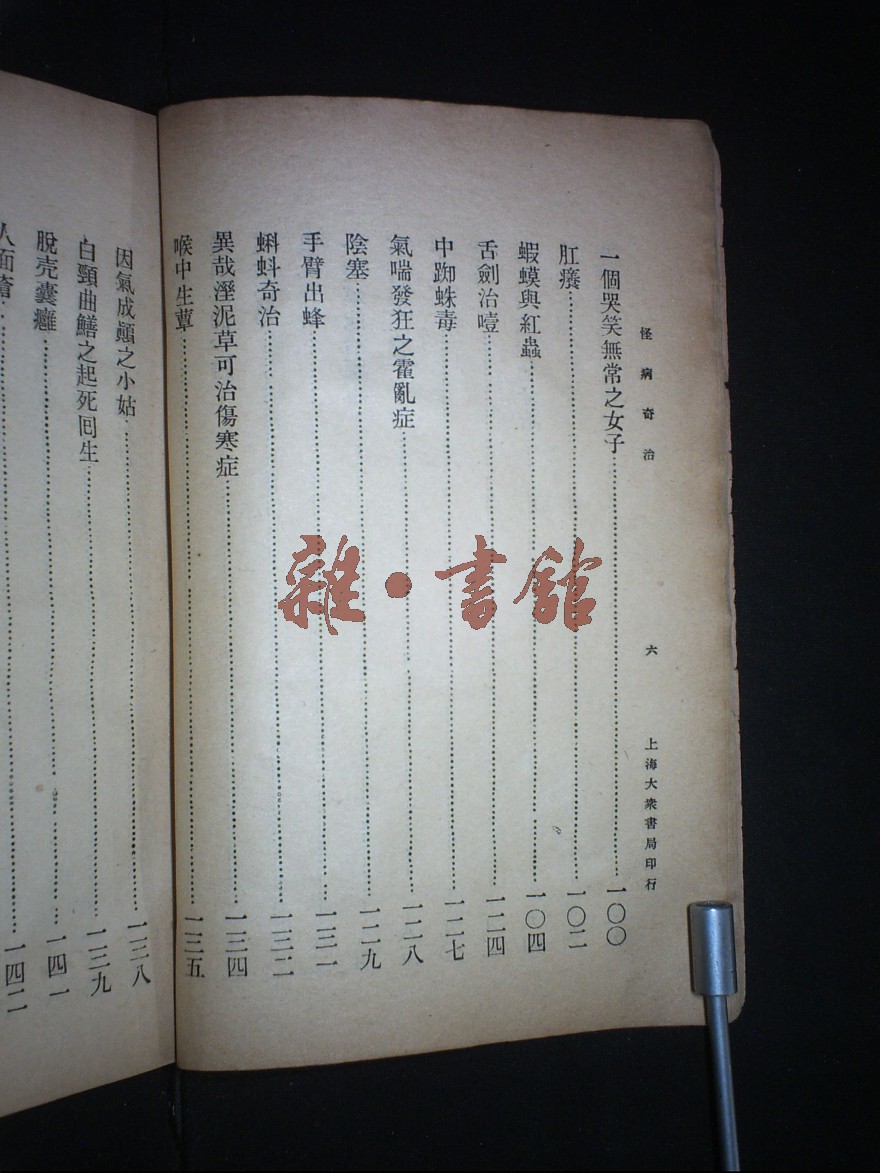 怪病奇治
六
上海大衆書局印行
一個哭笑無常之女子……一〇〇
肛癢……一〇二
蝦蟆與紅蟲……一〇四
舌劍治噎……一二四
中蜘蛛毒……一二七
氣喘發狂之霍亂症……一二八
陰塞……一二九
手臂出蜂……一三一
蝌蚪奇治……一三二
異哉溼泥草可治傷寒症……一三四
喉中生蕈……一三五
因氣成顚之小姑……一三八
白頸曲鱔之起死囘生……一三九
脫壳囊癰……一四一
人面瘡……一四二
雜·書館